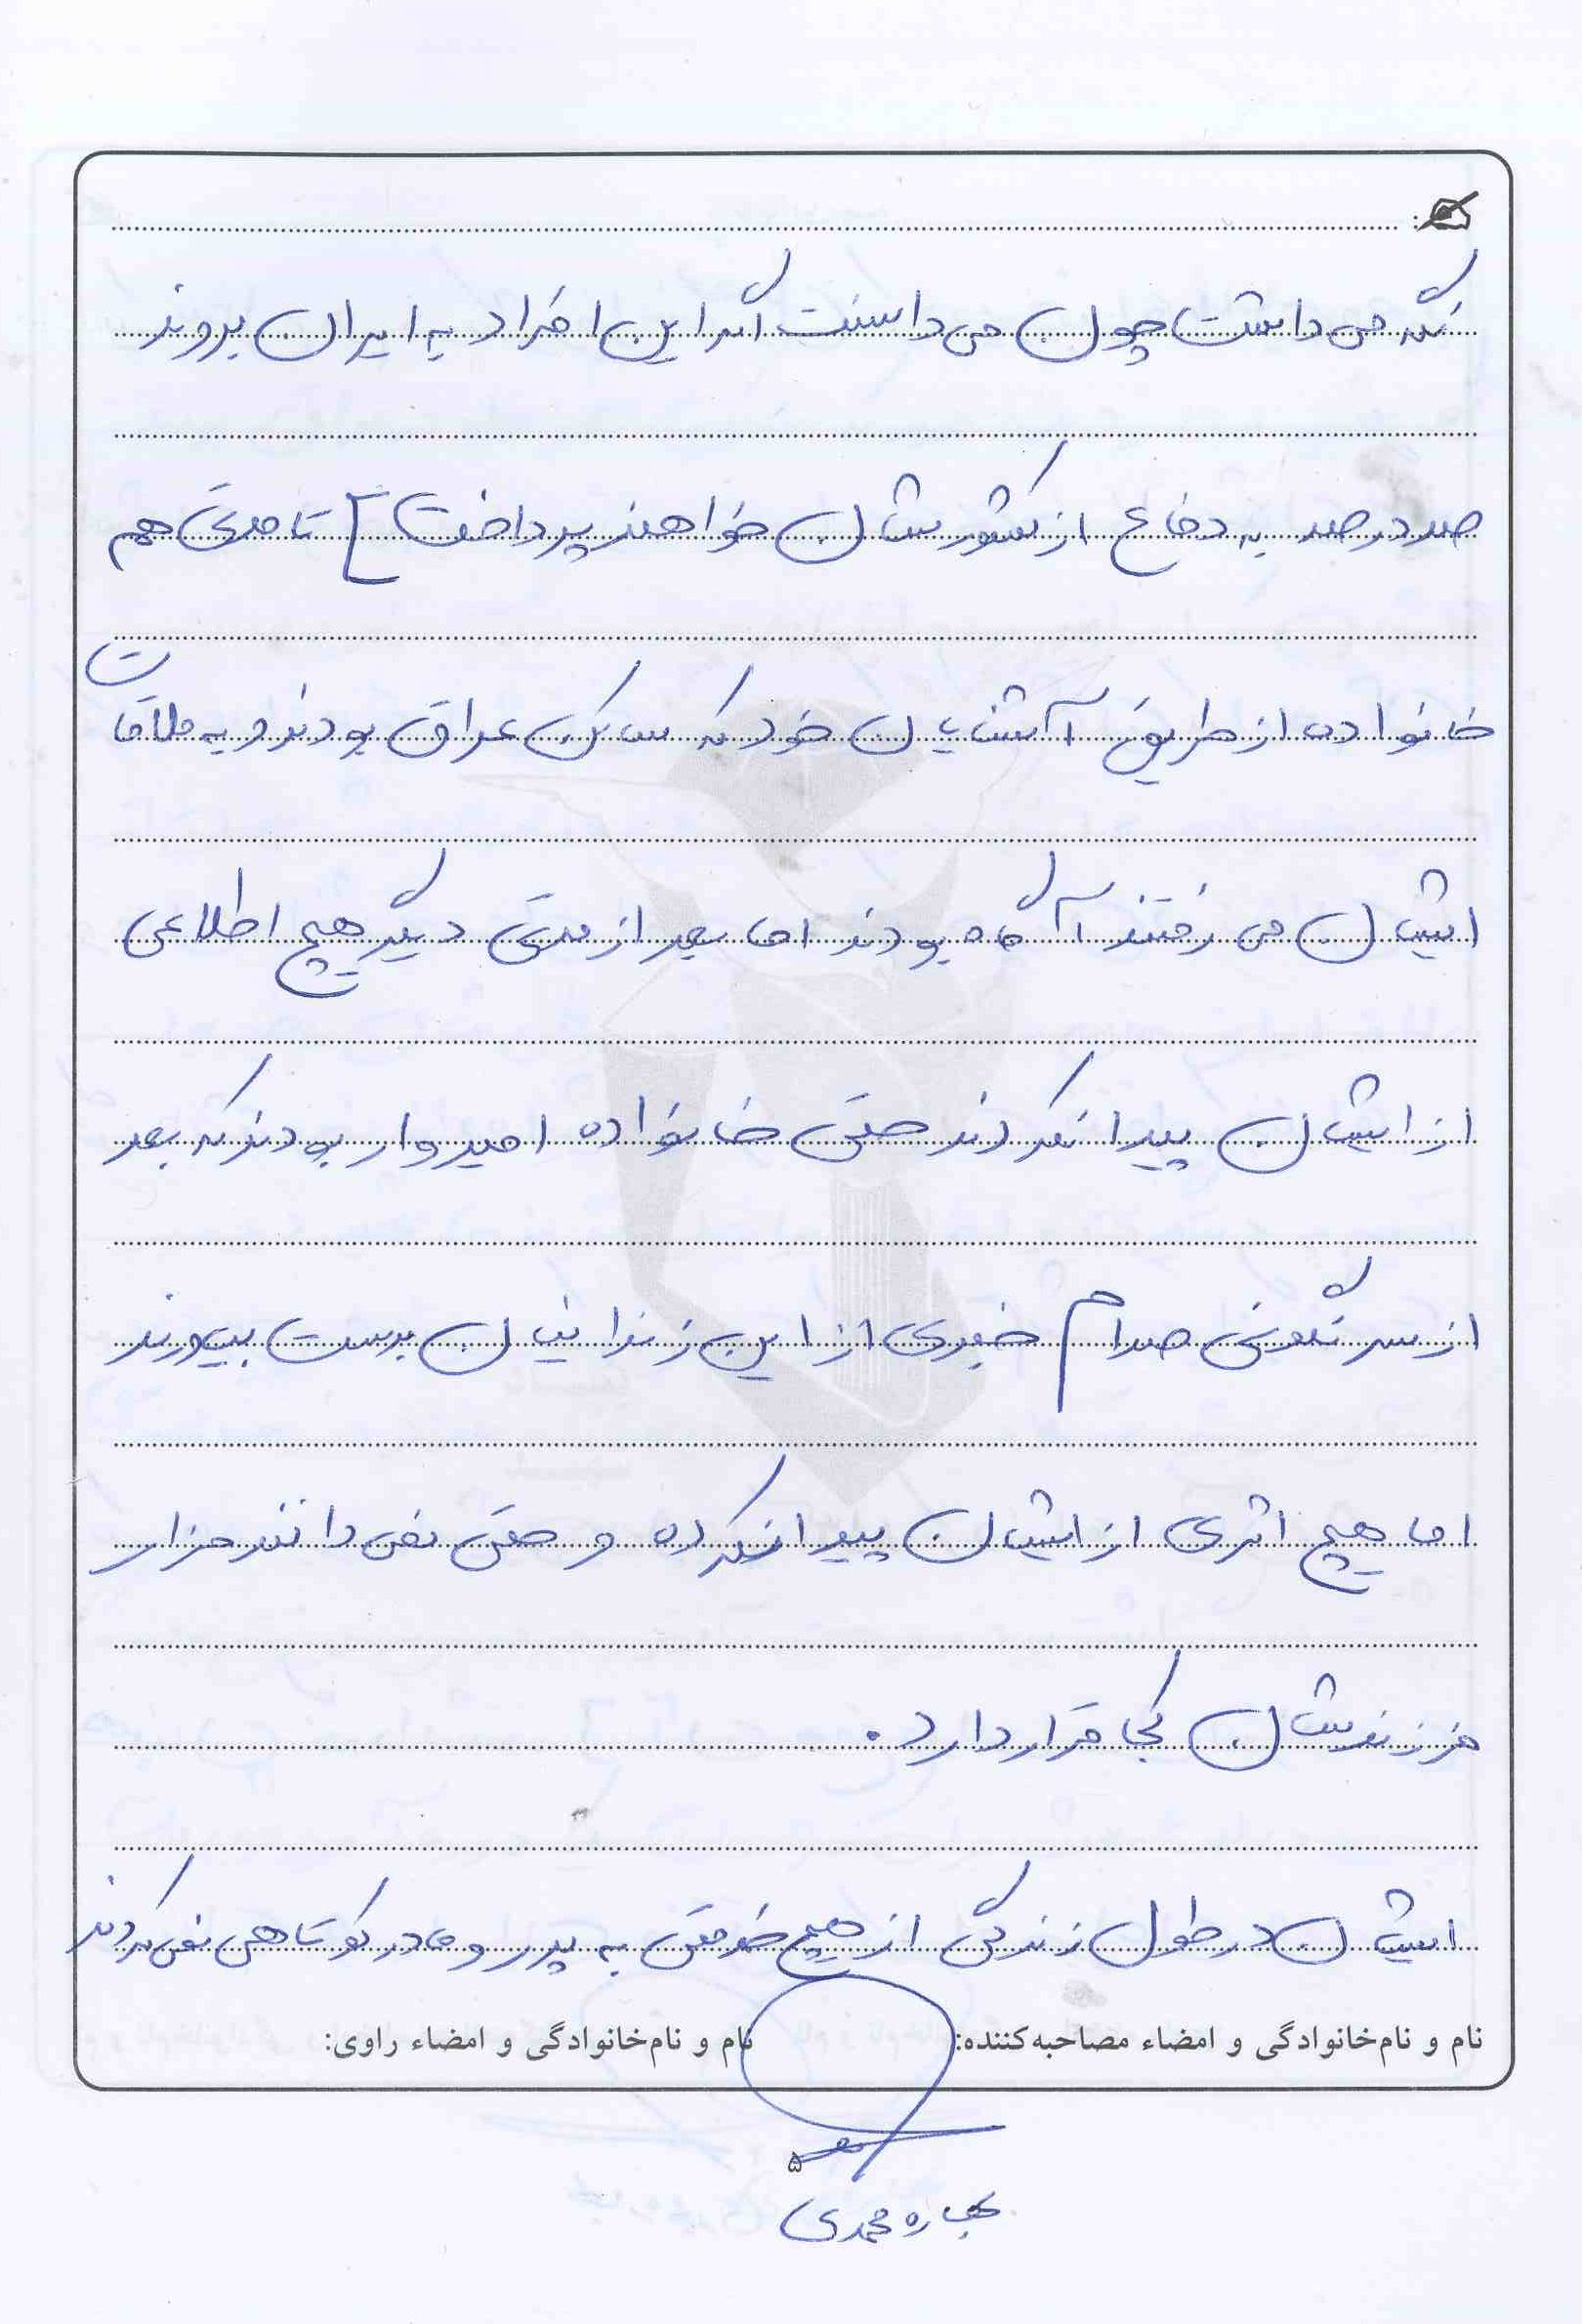 نگه می داشت چون می دانست اگر این افراد به ایران بروند
صددرصد به دفاع از کشورشان خواهند پرداخت] تا مدتی هم
خانواده از طریق آشنایان خود که ساکن عراق بودند و به ملاقات
ایشان می رفتند آگاه بودند اما بعد از مدتی دیگر هیچ اطلاعی
از ایشان پیدا نکردند حتی خانواده امیدوار بودند که بعد
از سرنگونی صدام خبری از این زندانیان بدست بیاورند
اما هیچ اثری از ایشان پیدا نکرده و حتی نمی دانند مزار
فرزندشان کجا قرار دارد.
ایشان در طول زندگی از هیچ خدمتی به پدر و مادر کوتاهی نمی کردند
نام و نام‌خانوادگی و امضاء مصاحبه‌کننده:
نام و نام‌خانوادگی و امضاء راوی:
۵
محمدی